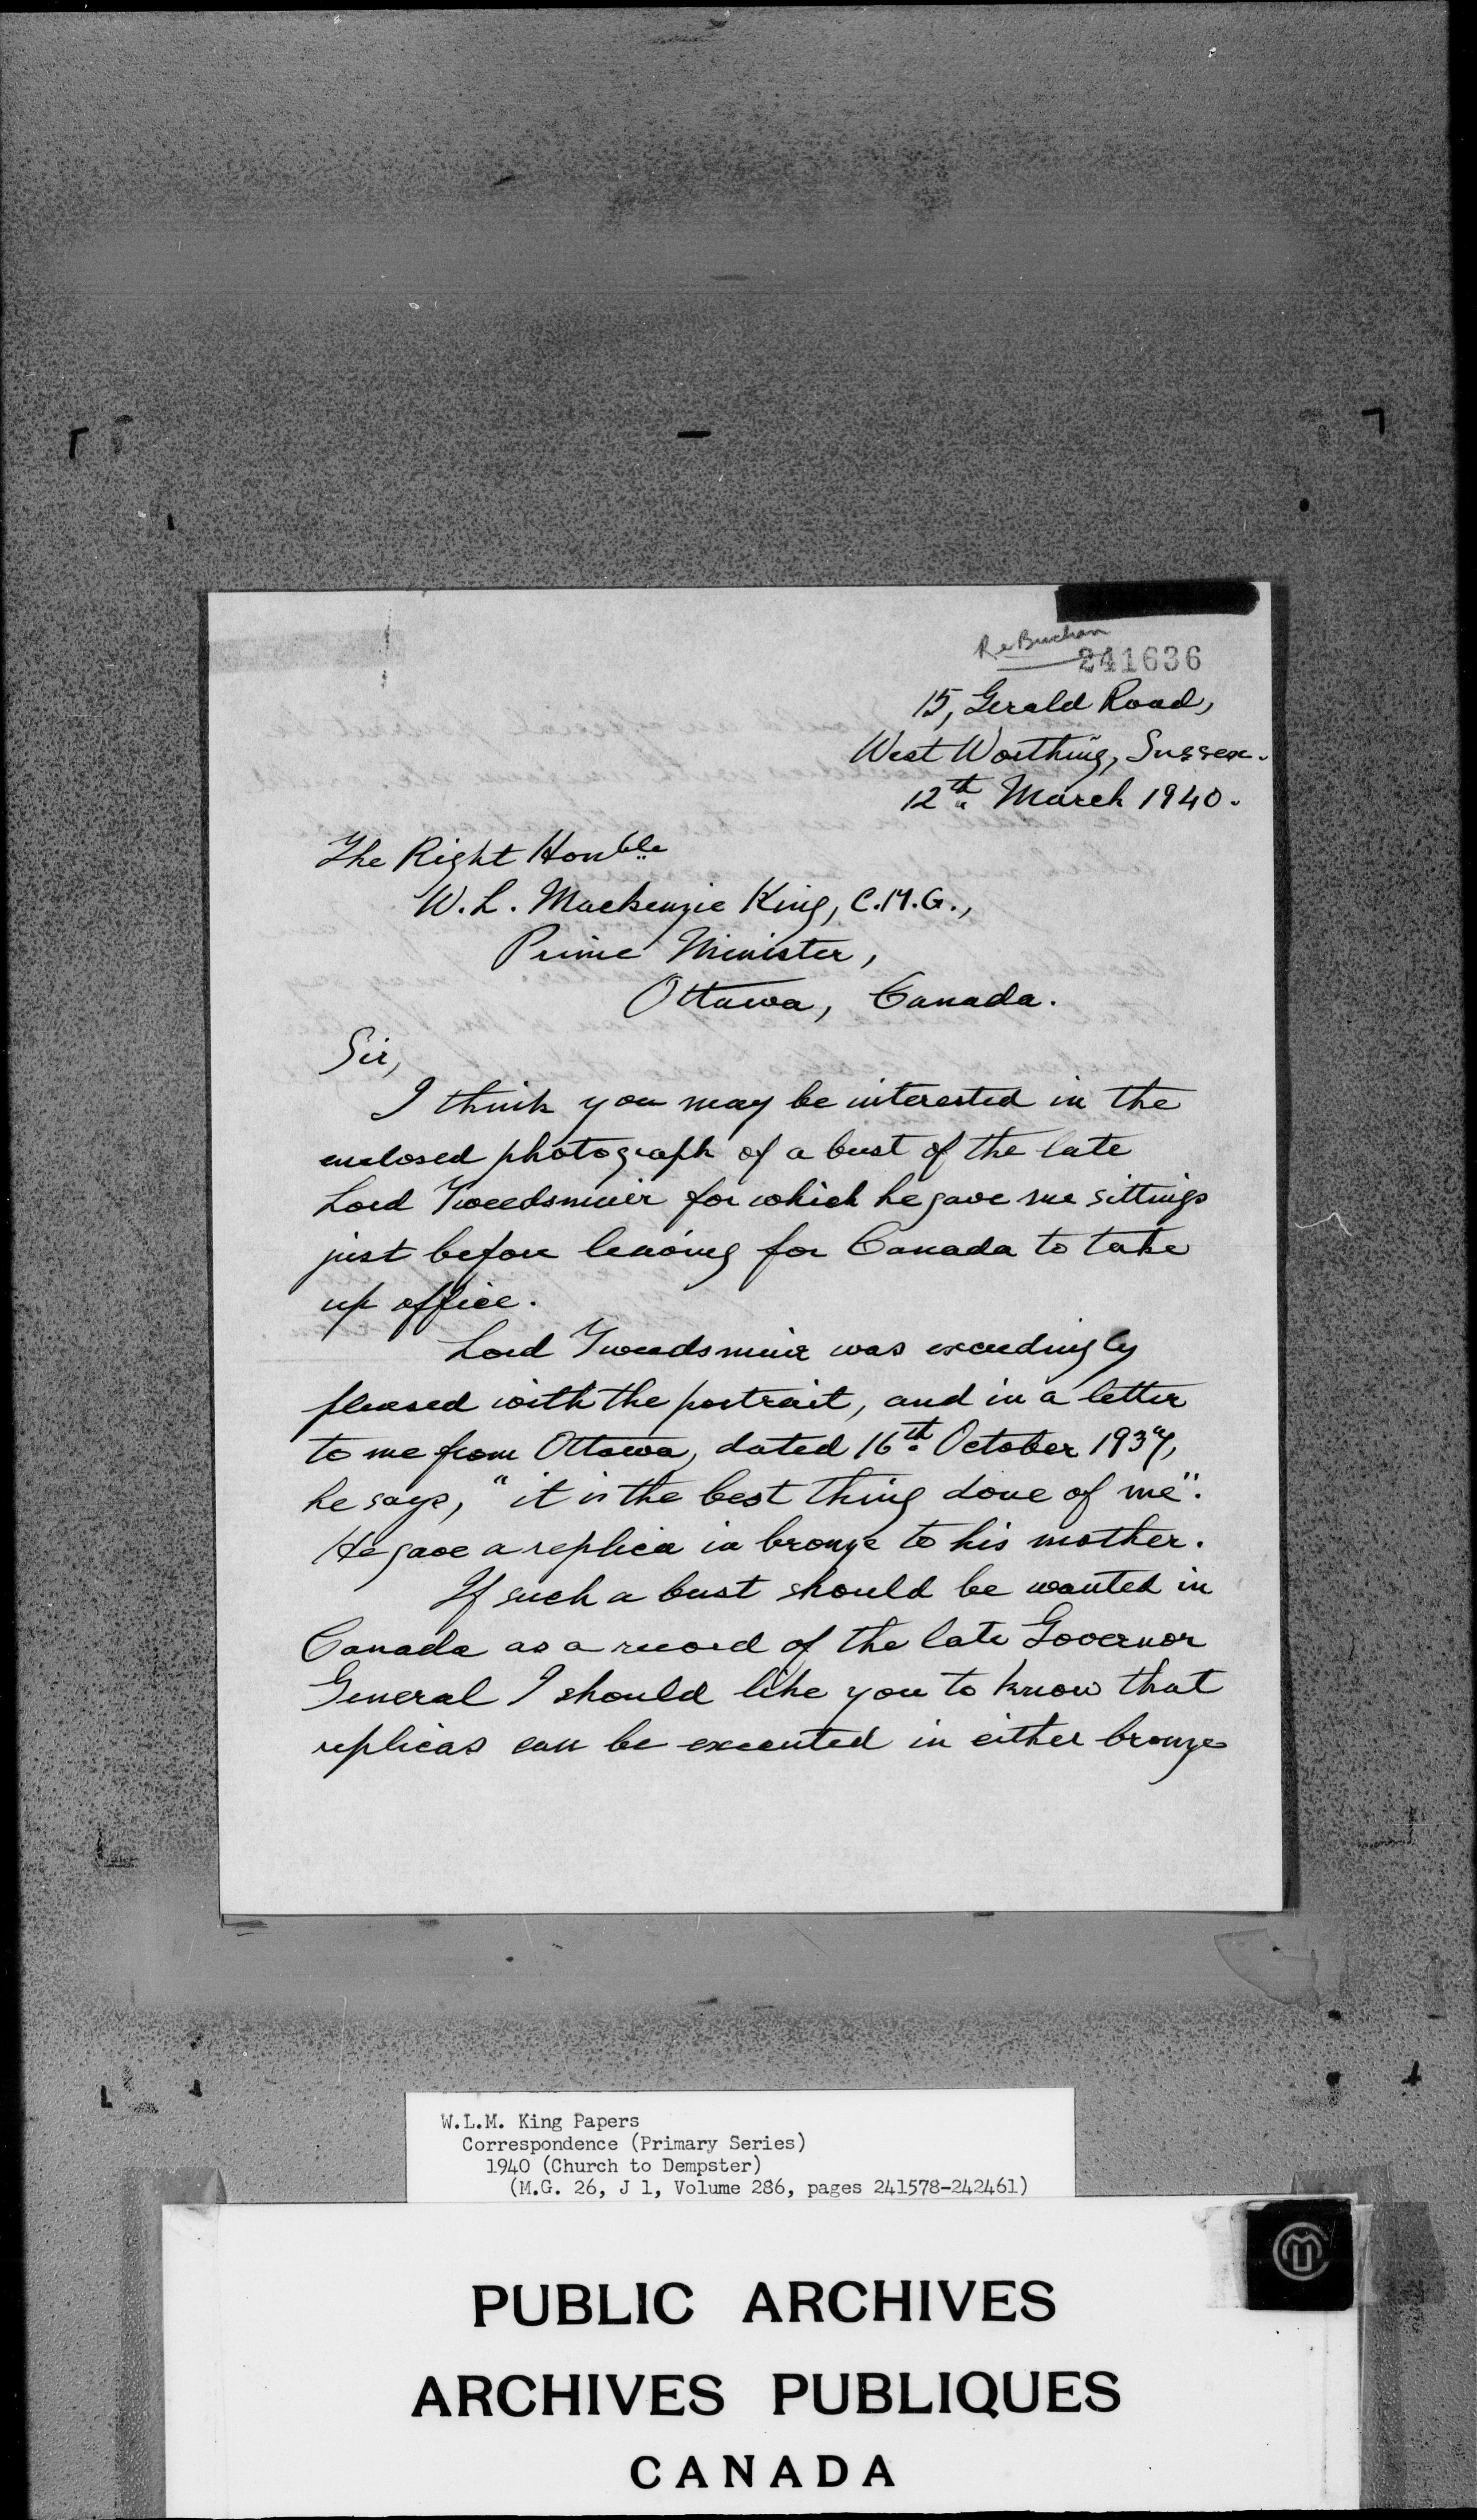 Re Buchan
241636
15, Gerald Road,
West Worthing, Sussex.
12th March 1940.
The Right Honble
W. L. Mackenzie King, C.M.G.,
Prime Minister,
Ottawa, Canada.
Sir,
I think you may be interested in the
enclosed photograph of a bust of the late
Lord Tweedsmuir for which he gave me sittings
just before leaving for Canada to take
up office.
Lord Tweedsmuir was exceedingly
pleased with the portrait, and in a letter
to me from Ottawa, dated 16th October 1937,
he says, "it is the best thing done of me".
He gave a replica in bronze to his mother.
If such a bust should be wanted in
Canada as a record of the late Governor
General I should like you to know that
replicas can be executed in either bronze
W.L.M. King Papers
Correspondence (Primary Series)
1940 (Church to Dempster)
(M.G. 26, J 1, Volume 286, pages 241578-242461)
PUBLIC ARCHIVES
ARCHIVES PUBLIQUES
CANADA